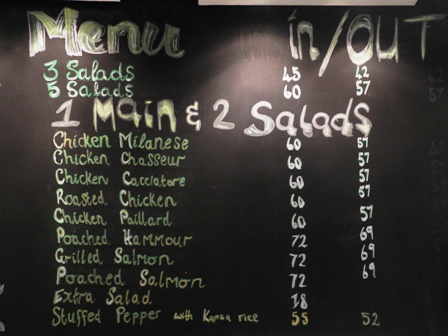 Menu in/OUT
3 Salads 45 42
5 Salads 60 57
1 Main & 2 Salads
Chicken Milanese 60 57
Chicken Chasseur 60 57
Chicken Cacciatore 60 57
Roasted Chicken 60 57
Chicken Paillard 60 57
Poached Hammour 72 69
Grilled Salmon 72 69
Poached Salmon 72 69
Extra Salad 18
Stuffed Pepper with Kapsa rice 55 52